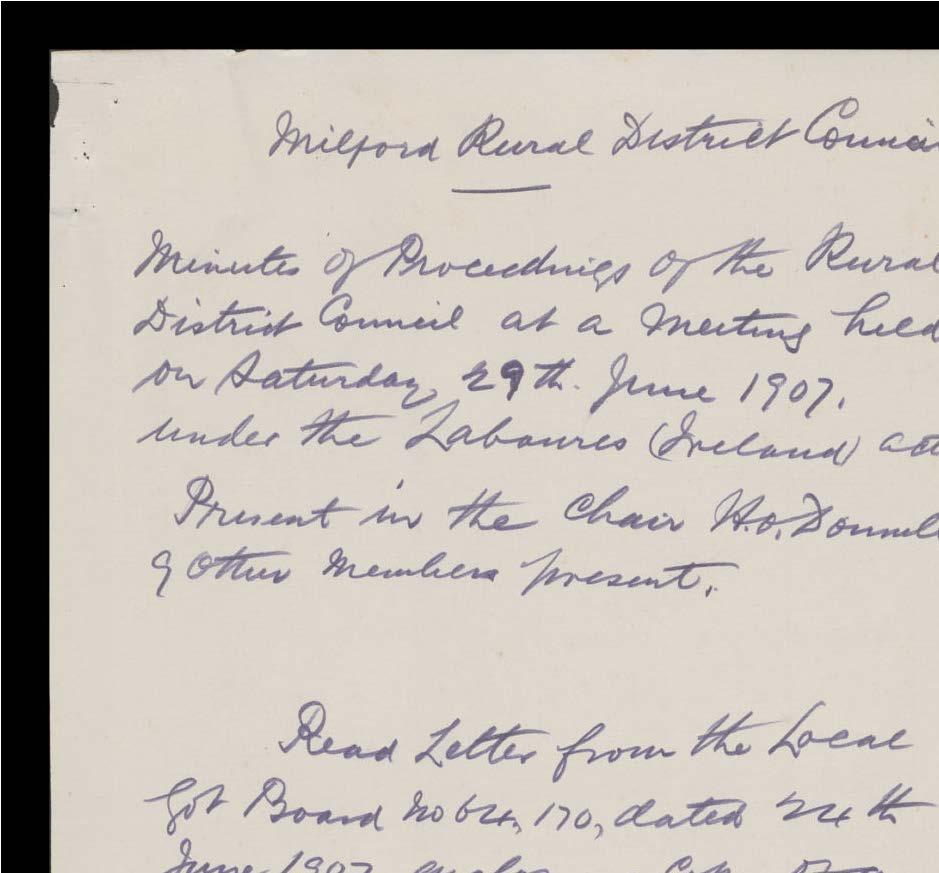 Milford Rural District Counci
Minutes of Proceedings of the Rural
District Council at a Meeting held
on Saturday, 29th. June 1907.
under the Laboures (Ireland) act
Present in the Chair H.O. Donnell
9 Other Members present.
Read Letter from the Local
Got Board No 64,170, dated 24th
June 1907